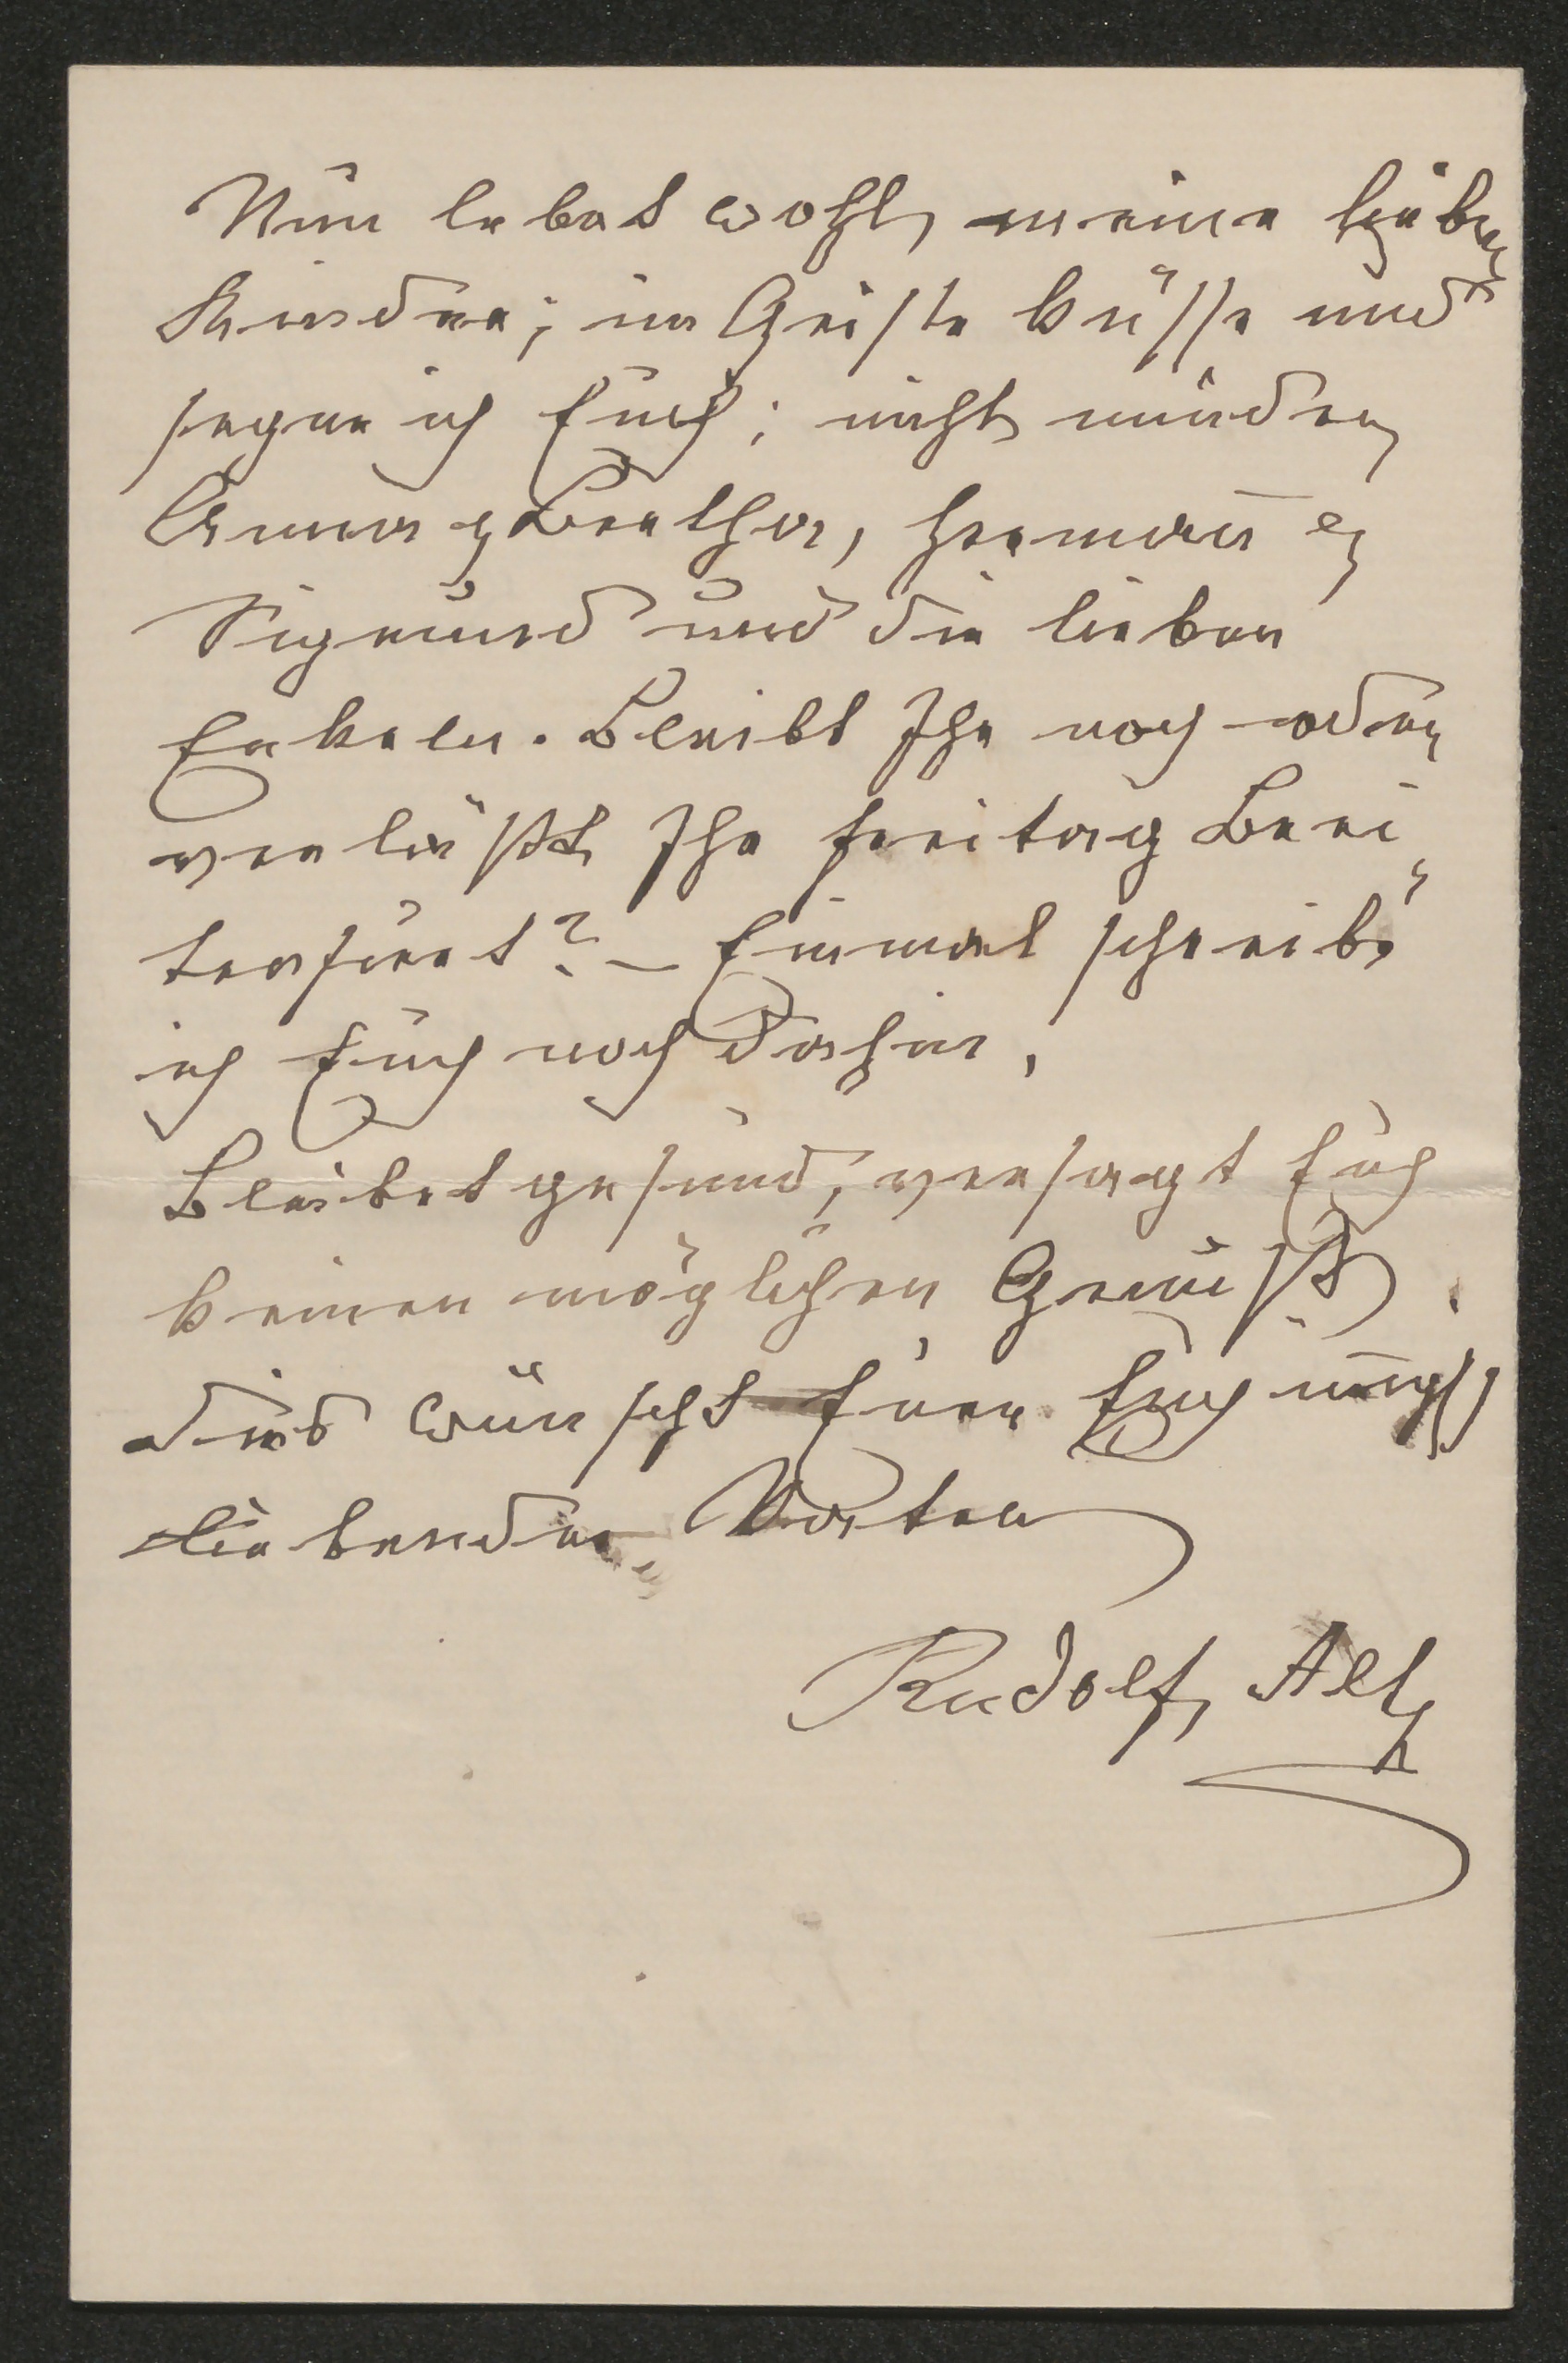 Nun lebet wohl, meine lieben
Kinder; im Geiste küsse und
segne ich Euch; nicht minder
Anna & Bertha, Herman̄ &
Sigmund und die lieben
Enkeln. Bleibt Ihr noch oder
verläßt Ihr freitag Brei„
tenfurt? – Einmal schreib'
ich Euch noch dahin,
Bleibet gesund, versagt Euch
keinen möglichen Genuß,
dieß wünscht Euer Euch innigst
liebender Vater
Rudolf Alt